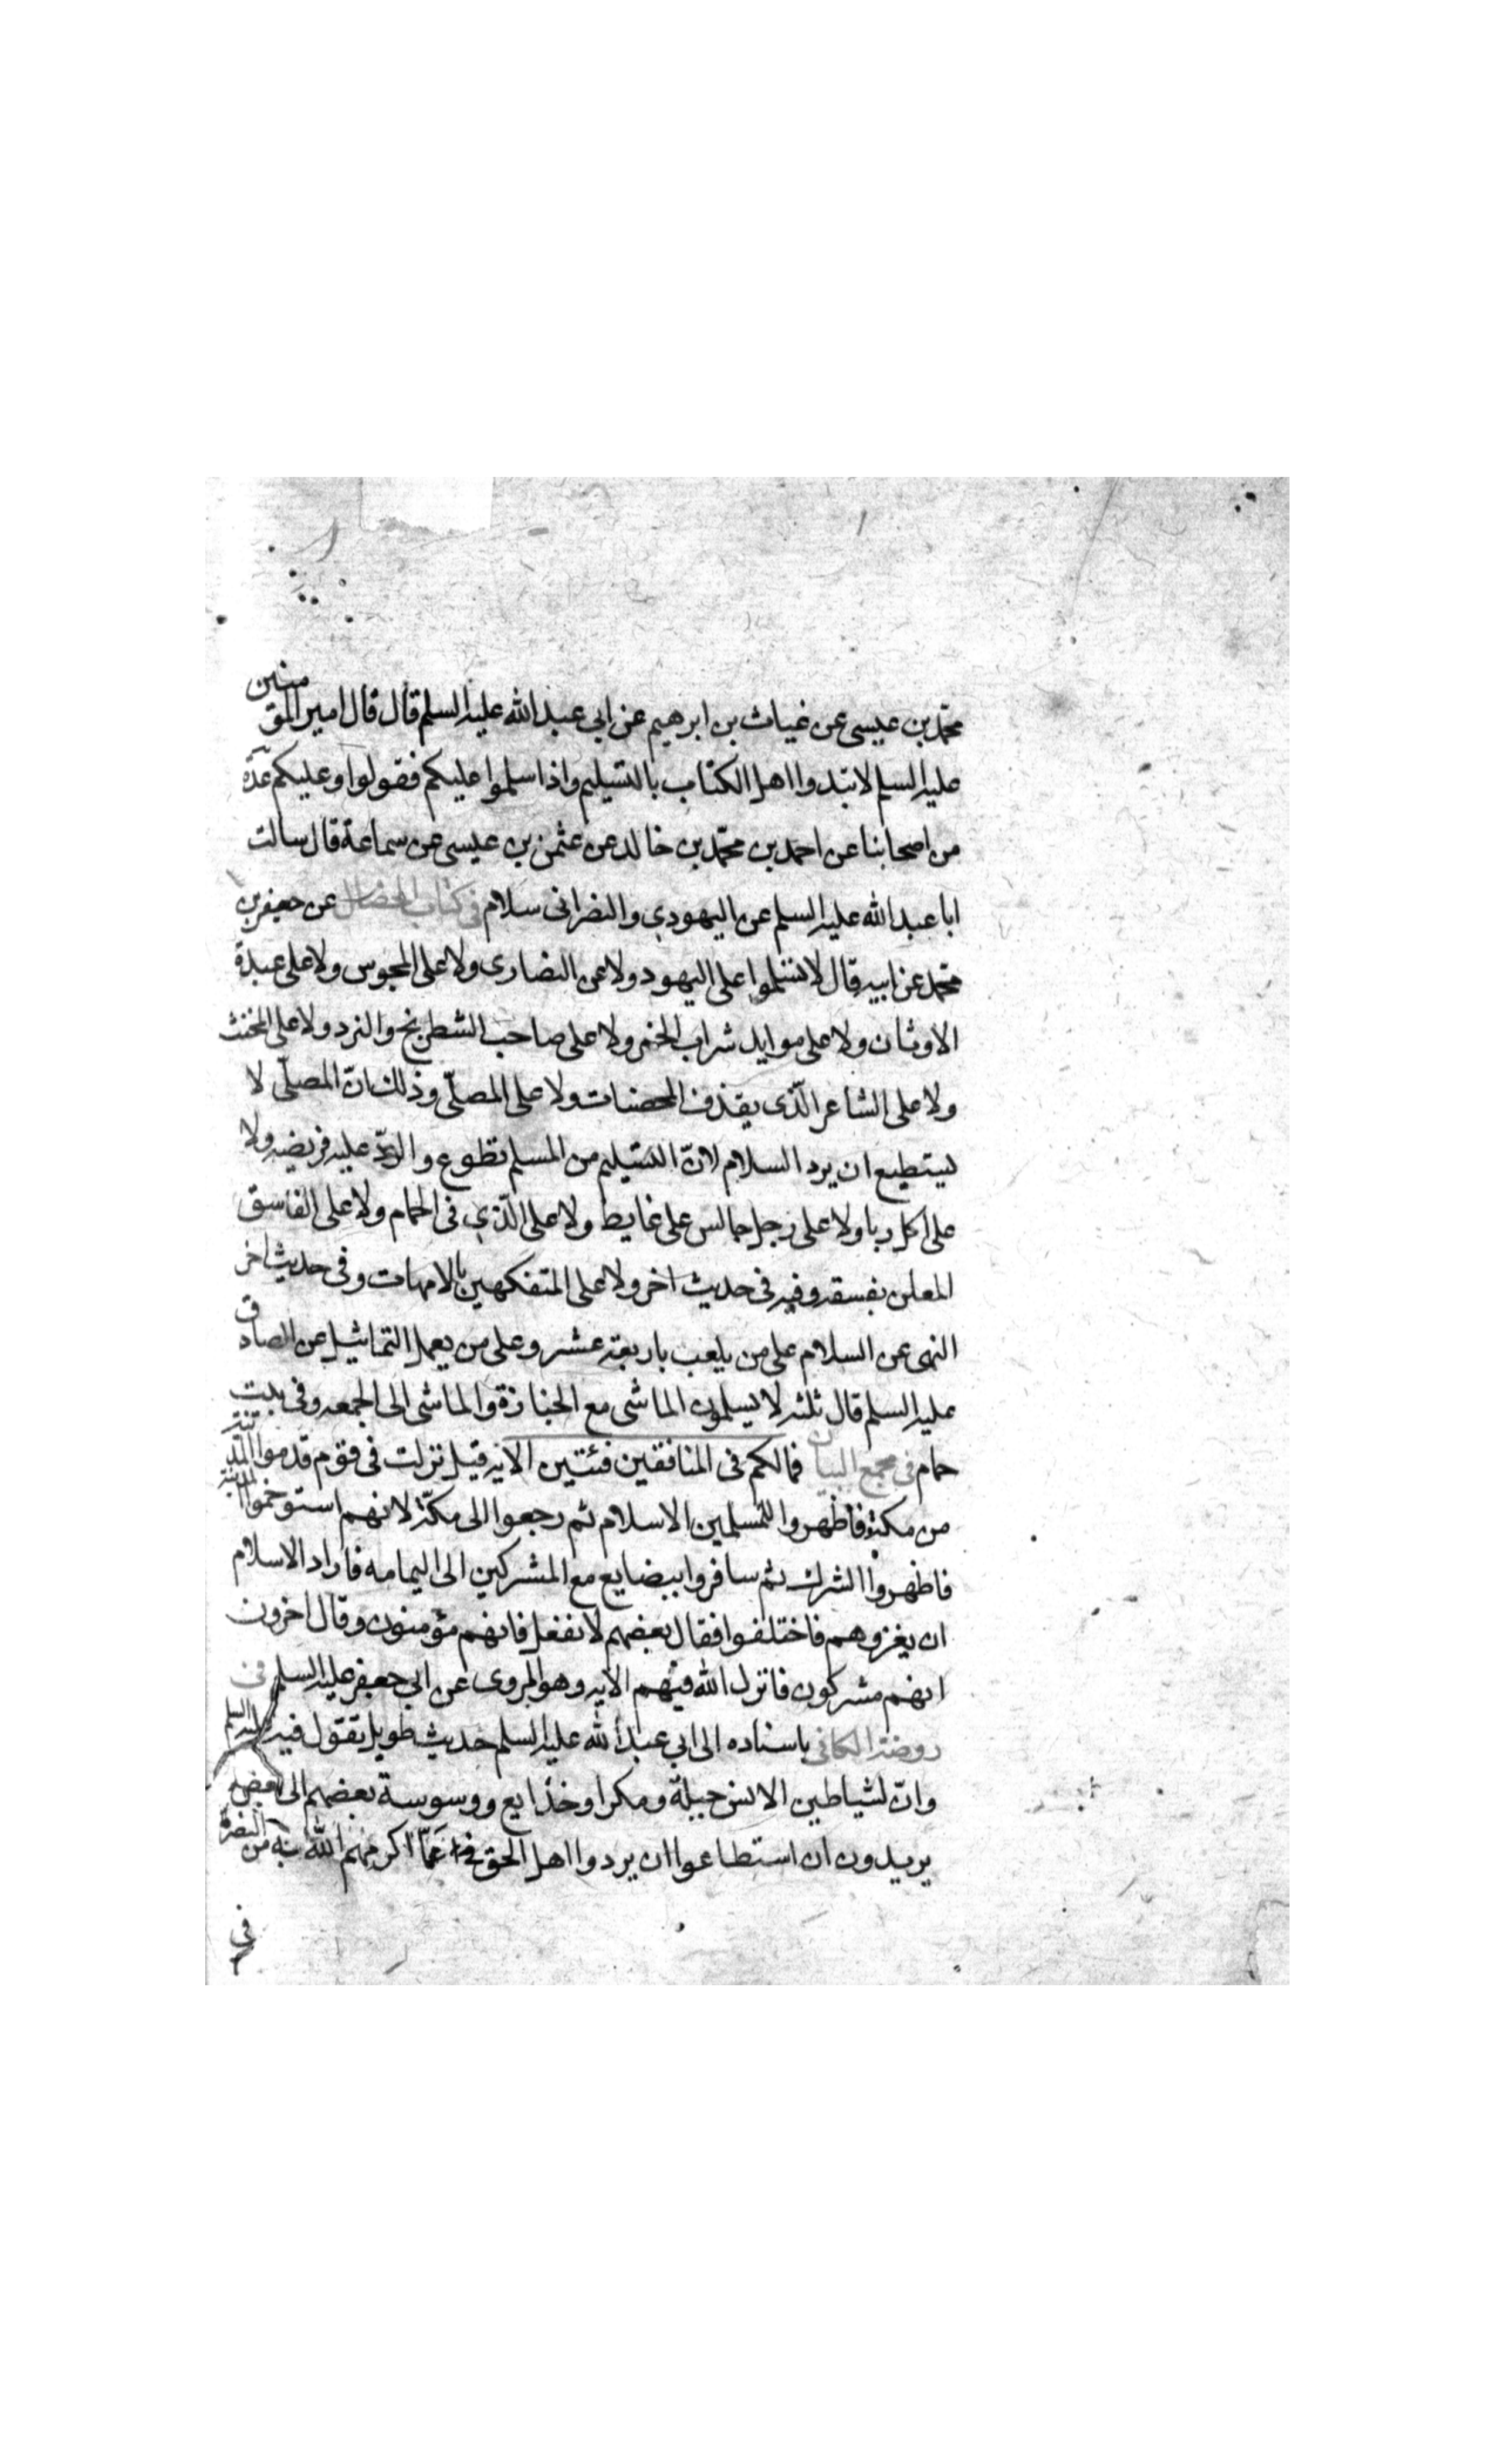 محمّد بن عيسى عن غياث بن ابرهيم عن ابي عبد الله عليه السلم قال قال امير المؤمنين
عليه السلم لا تبدوا اهل الكتاب بالتسليم واذا سلموا عليكم فقولوا وعليكم عدّة
من اصحابنا عن احمد بن محمّد بن خالد عن عثمن بن عيسى عن سماعة قال سالت
ابا عبد الله عليه السلم عن اليهودي والنصرانى سلام فى كتاب الخصال عن جعفر بن
محمّد عن ابيه قال لا تسلموا على اليهود ولا عن النصارى ولا على المجوس ولا على عبدة
الاوثان ولا على موايد شراب الخمر ولا على صاحب الشطرنج والنرد ولا على المخنث
ولا على الشاعر الّذى يقذف المحصنات ولا على المصلّى وذلك انّ المصلّى لا
يستطيع ان يرد السلام لانّ التسليم من المسلم تطوع والردّ عليه فريضه ولا
على اكل ربا ولا على رجل جالس على غايط ولا على الّذي فى الحمام ولا على الفاسق
المعلن بفسقه وفيه فى حديث اخر ولا على المتفكهين بالامهات وفى حديث اخر
النهى عن السلام على من يلعب باربعة عشر وعلى من يعمل التماثيل عن الصادق
عليه السلم قال ثلثه لا يسلمون الماشى مع الجنازة والماشى الى الجمعه وفى بيت
حمام فى مجمع البيان فمالكم فى المنافقين فئتين الايه قيل نزلت فى قوم قدموا المدينة
من مكة فاظهروا للمسلمين الاسلام ثم رجعوا الى مكّة لانهم استوخموا المدينة
فاظهروا الشرك ثم سافروا ببضايع مع المشركين الى اليمامه فاراد الاسلام
ان يغزوهم فاختلفوا فقال بعضهم لا نفعل فانهم مؤمنون وقال اخرون
انهم مشركون فانزل الله فيهم الايه وهو المروى عن ابي جعفر عليه السلم فى
روضة الكافى باسناده الى ابي عبد الله عليه السلم حديث طويل تقول فيه عليه السلم
وانّ لشياطين الانس حيلة ومكرا وخدايع ووسوسة بعضهم الى بعض
يريدون ان استطاعوا ان يردوا اهل الحق عمّا اكرمهم الله به من النصرة
فى